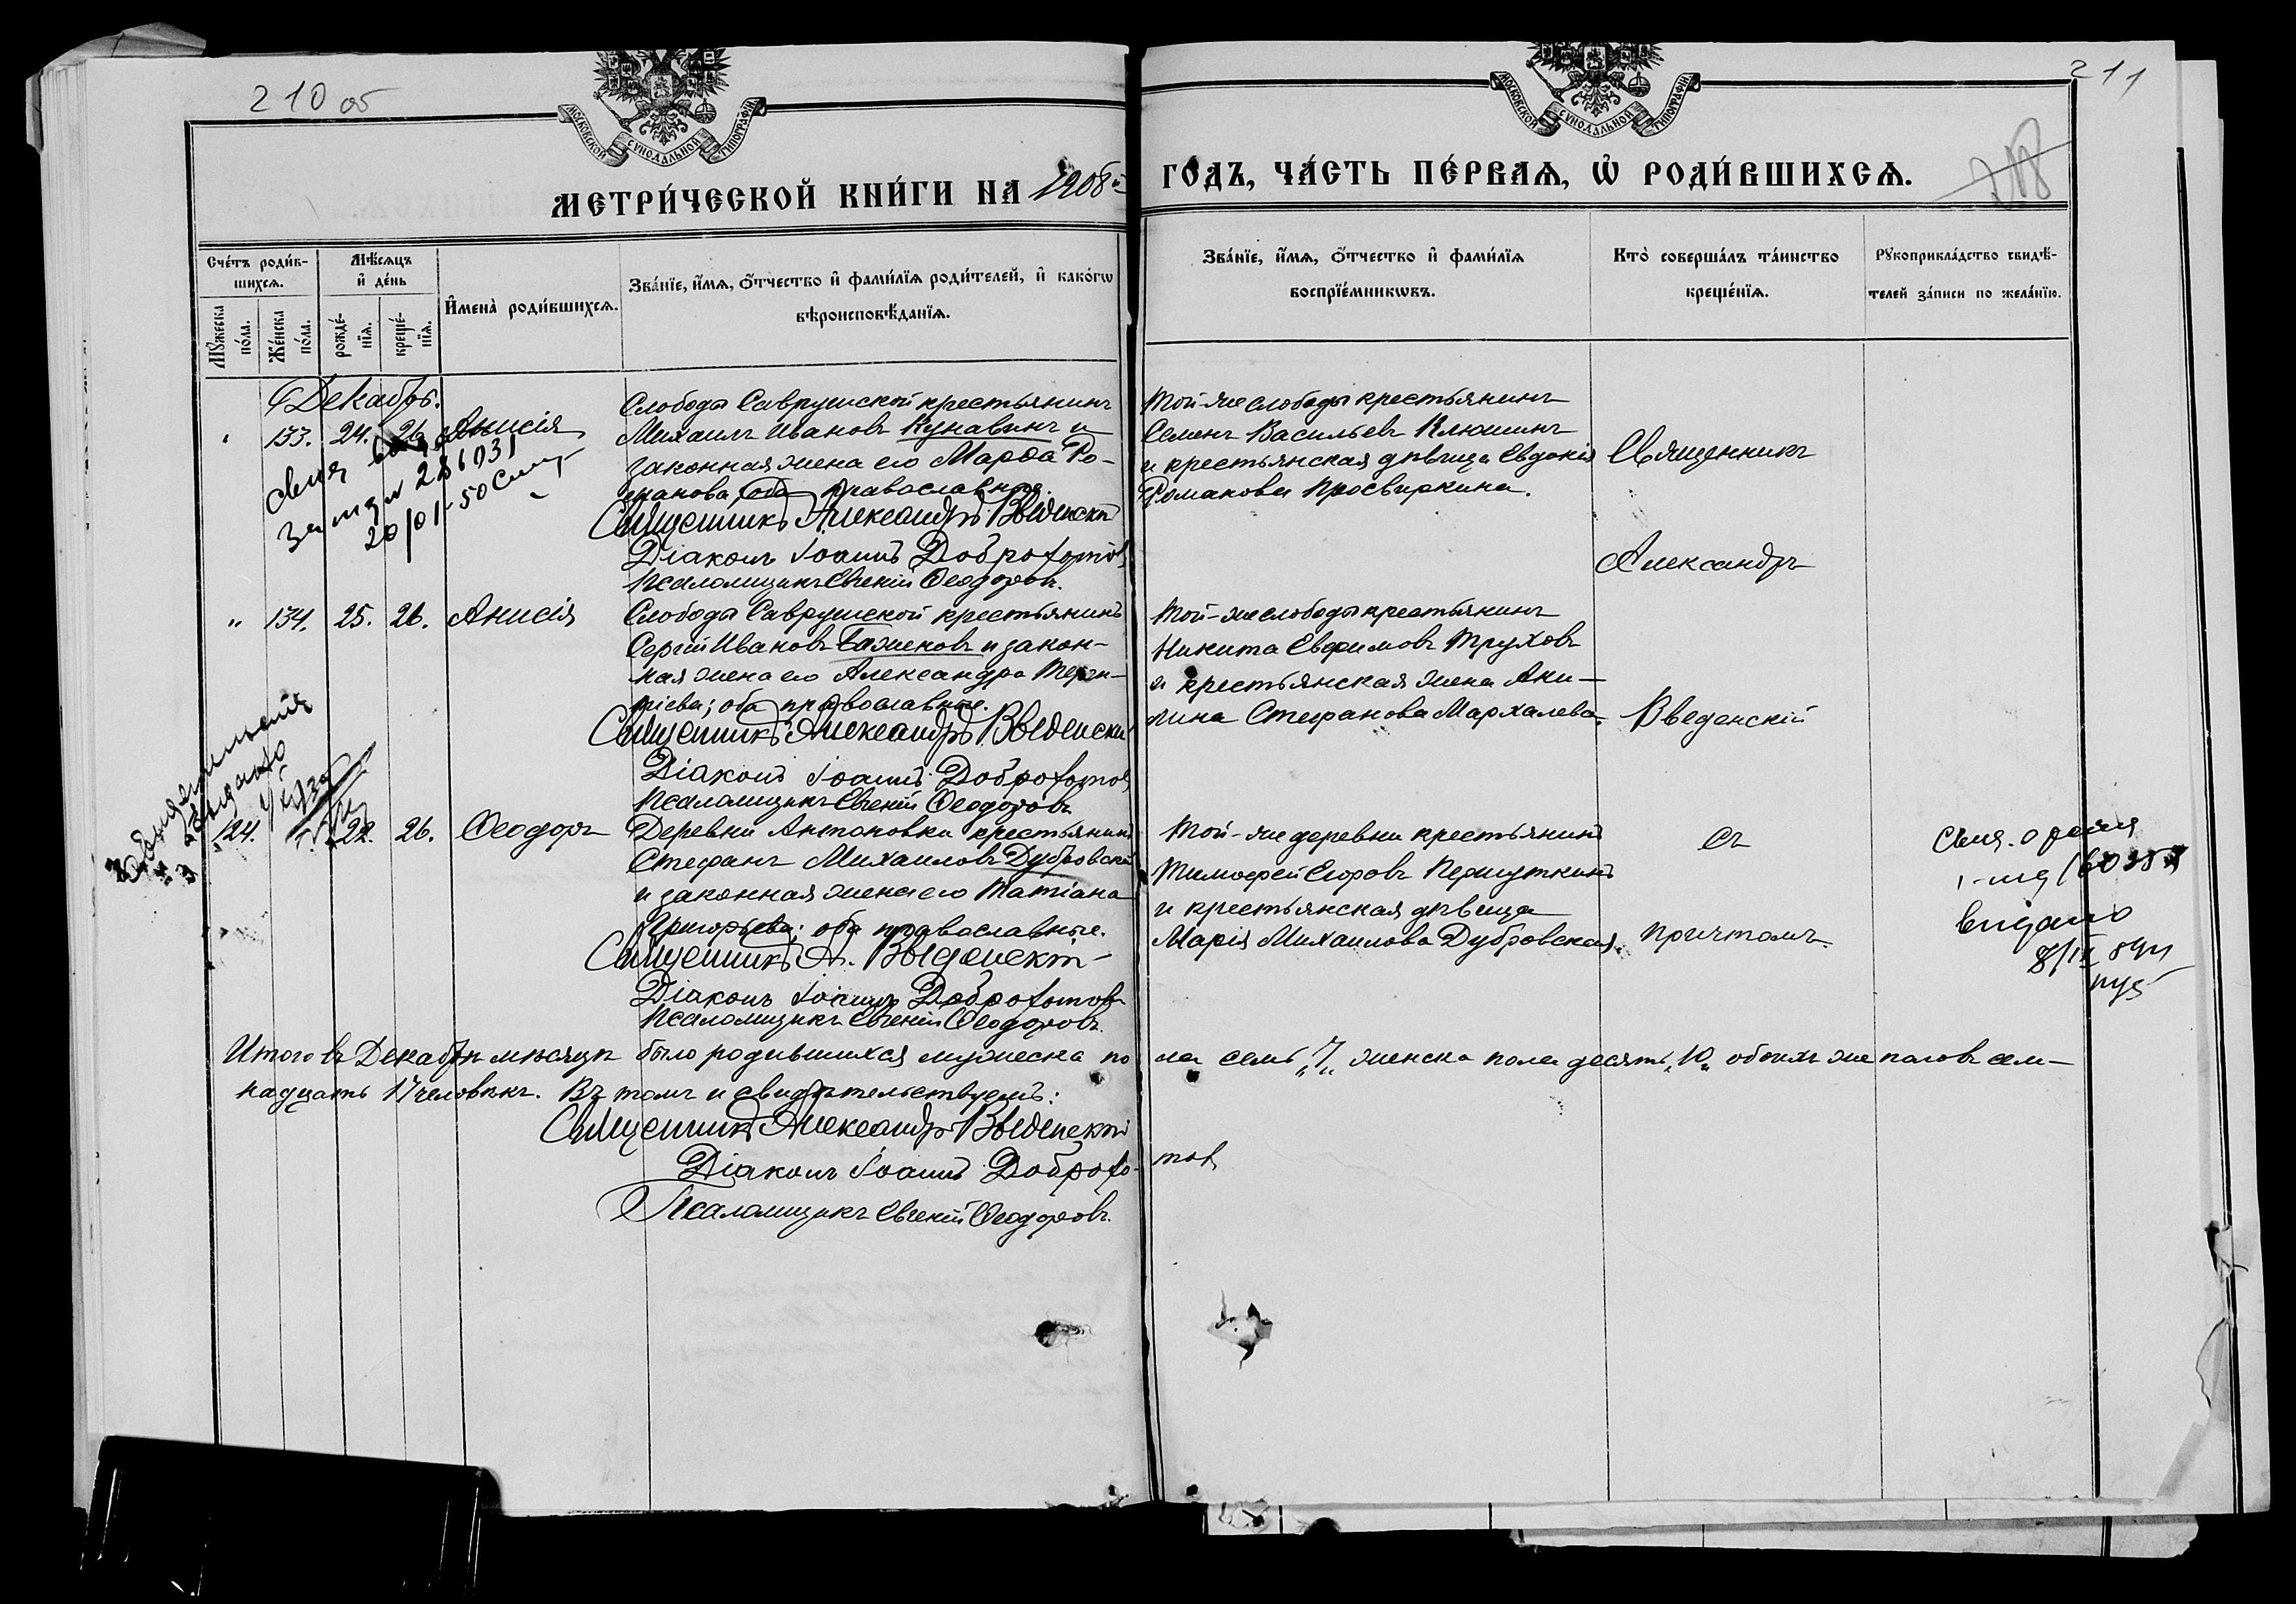 210 об
211
МОСКОВСКОЙ СѴНОДАЛЬНОЙ ТИПОГРАФІИ
МОСКОВСКОЙ СѴНОДАЛЬНОЙ ТИПОГРАФІИ
МЕТРИ́ЧЕСКОЙ КНИ́ГИ НА 1908й
ГО́ДЪ, ЧА́СТЬ ПЕ́РВАѦ, Ѡ҆ РОДИ́ВШИХСѦ.
Сче́тъ роди́в-
шихсѧ.
Мꙋ́жеска по́ла.
Же́нска по́ла.
Мѣ́сѧцъ
и҆ де́нь
рожде́-
нїѧ.
креще́-
нїѧ.
И҆мена̀ роди́вшихсѧ.
Зва́нїе, и҆́мѧ, ѻ҆́тчество и҆ фами́лїѧ роди́телей, и҆ како́гѡ
вѣроисповѣ́данїѧ.
Зва́нїе, и҆́мѧ, ѻ҆́тчество и҆ фами́лїѧ
воспрїе́мникѡвъ.
Кто̀ соверша́лъ та́инство
креще́нїѧ.
Рꙋкоприкла́дство свидѣ́-
телей за́писи по жела́нїю.
Декабрь.
" 133. 24. 26. Анисія
Слободы Саврушской крестьянинъ
Михаилъ Ивановъ Кунавинъ и
законная жена его Марфа Ро-
манова, оба православные.
Священникъ Александръ Введенскій
Діаконъ Іоаннъ Доброхотовъ
Псаломщикъ Евгеній Ѳеодоровъ.
Той-же слободы крестьянинъ
Семенъ Васильевъ Клюшинъ
и крестьянская дѣвица Евдокія
Романова Просвиркина.
Священникъ
Александръ
Введенскій
съ
причтомъ.
20/01-50
" 134. 25. 26. Анисія
Слободы Саврушской крестьянинъ
Сергій Ивановъ Сажновъ и закон-
ная жена его Александра Терен-
тіева; оба православные.
Священникъ Александръ Введенскій
Діаконъ Іоаннъ Доброхотовъ
Псаломщикъ Евгеній Ѳеодоровъ
Той-же слободы крестьянинъ
Никита Евфимовъ Труховъ
и крестьянская жена Аки-
лина Стефанова Мархалева.
выдано
124. " 22. 26. Ѳеодоръ
Деревни Антоновки крестьянинъ
Стефанъ Михаиловъ Дубровскій
и законная жена его Татіана
Григорьева; оба православные.
Священникъ А. Введенскій
Діаконъ Іоаннъ Доброхотовъ
Псаломщикъ Евгеній Ѳеодоровъ.
Той-же деревни крестьянинъ
Тимофей Егоровъ Першуткинъ
и крестьянская дѣвица
Марія Михаилова Дубровская.
выдано
Итого въ Декабрѣ мѣсяцѣ было родившихся мужеска по ла семь "7" женска пола десять "10" обоихъ же половъ сем-
надцать 17 человѣкъ. Въ томъ и свидѣтельствуемъ:
Священникъ Александръ Введенскій
Діаконъ Іоаннъ Доброхо- товъ
Псаломщикъ Евгеній Ѳеодоровъ.